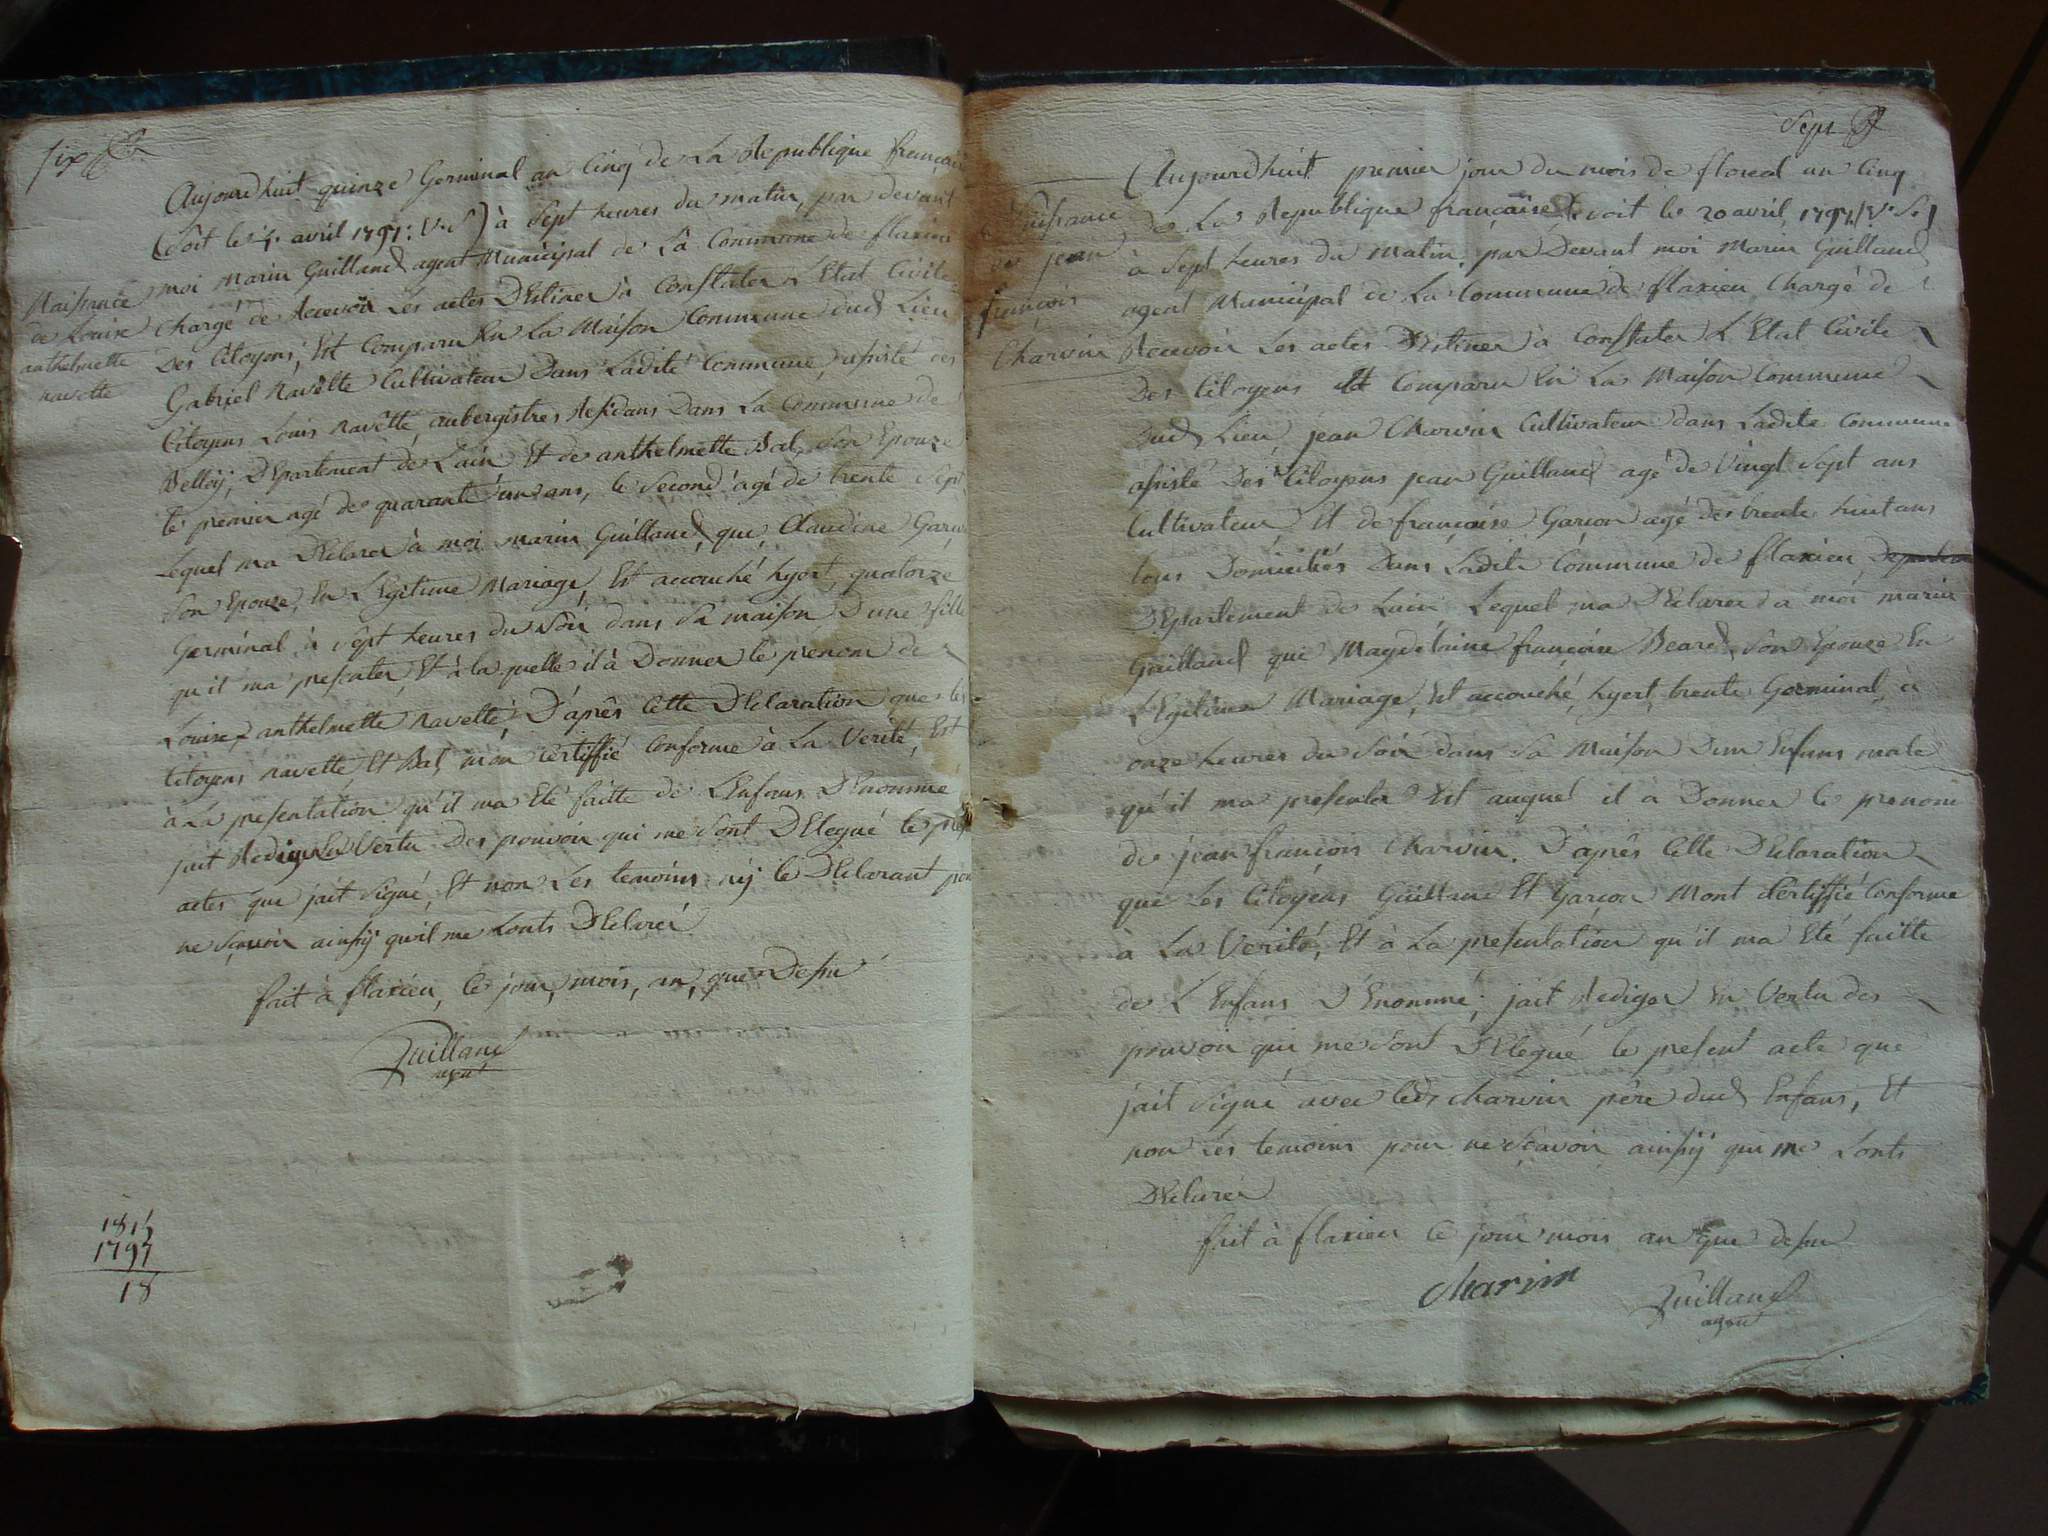 six
Aujourdhuit quinze Germinal an Cinq de La Republique française
(soit le 4 avril 1797: V. S) à Sept heures du matin, par devant
moi Marin Guilland agent Municipal de Lâ Commune de flaxieu
Chargé de Recevoir Les actes D'Estiner à Constater L'Etat Civile
Des Citoyens, Est Comparu En La Maison Commune dud Lieu
Gabriel Ravette Cultivateur Dans Ladite Commune, assisté des
Citoyens Louis Ravette, aubergistres Residans Dans La Commune de
Belley, Departement de Lain Et de anthelmette Bal, Son Epouze
le premier agé de quarante deux ans, le Second agé de trente Sept
Lequel ma Déclarer à moi marin Guilland, que, Claudine Garçon
Son Epouze, En LEgitime Mariage, Est accouché hyert, quatorze
Germinal à sept heures du Soir dans Sa maison D'une fille
qu'il ma presenter, Et à la quelle il à Donner le prenom de
Louise, anthelmette Ravette, D'après Cette Déclaration que les
Citoyens Ravette Et Bal, mon Certiffié Conforme à La Verité, Est
à La presentation qu'il ma Eté faitte de L'Enfans D'Enommé
jait Rediger En Vertu Des pouvoir qui me Sont Délegué le present
actes que jait Signé, Et non Les temoins nÿ le Déclarant pour
ne Sçavoir ainsÿ qu'il me Lonts Déclaré
fait à flaxieu, le jour, mois, an, que Dessu
Guilland
agent
Naissance
de Louise
anthelmette
ravette
1815
1797
18
Sept
Aujourdhuit premier jour du mois de floreal an Cinq
de La Republique française (soit le 20 avril 1797/V. S.)
à Sept heures du Matin, par Devant moi Marin Guilland
agent Municipal de La Commune de flaxieu Chargé de
Recevoir Les actes D'Estiner à Constater L'Etat Civile
Des Citoyens Est Comparu En La Maison Commune
Dud Lieu, jean Charvin Cultivateur dans Ladite Commune
assisté Des Citoyens jean Guilland agé de Vingt Sept ans
Cultivateur Et de françoise Garçon agé de trente huit ans
tous Domiciliés Dans Ladite Commune de flaxieu
Département de Lain Lequel ma Déclarer à moi marin
Guilland que Magdelaine françoise Beard, Son Epouze En
LEgitime Mariage, Est accouché, hyert, trente Germinal, à
onze heures du Soir dans Sa Maison D'un Enfans male
qu'il ma presenter Est auquel il à Donner le prenom
de jean françois Charvin. D'après Cette Déclaration
que Les Citoyens Guilland Et Garçon Mont Certiffié Conforme
à La Verité, Et à La presentation qu'il ma Eté faitte
de L'Enfans D'Enommé; jait Rediger En Vertu des
pouvoir qui me Sont Délegué le present acte que
jait Signé avec led Charvin père dud Enfans, Et
non Les temoins pour ne Sçavoir ainsÿ qui me Lonts
Déclaré
fait à flaxieu le jour mois an que dessu
Charvin
Guilland
agent
Naissance
de jean
françois
Charvin